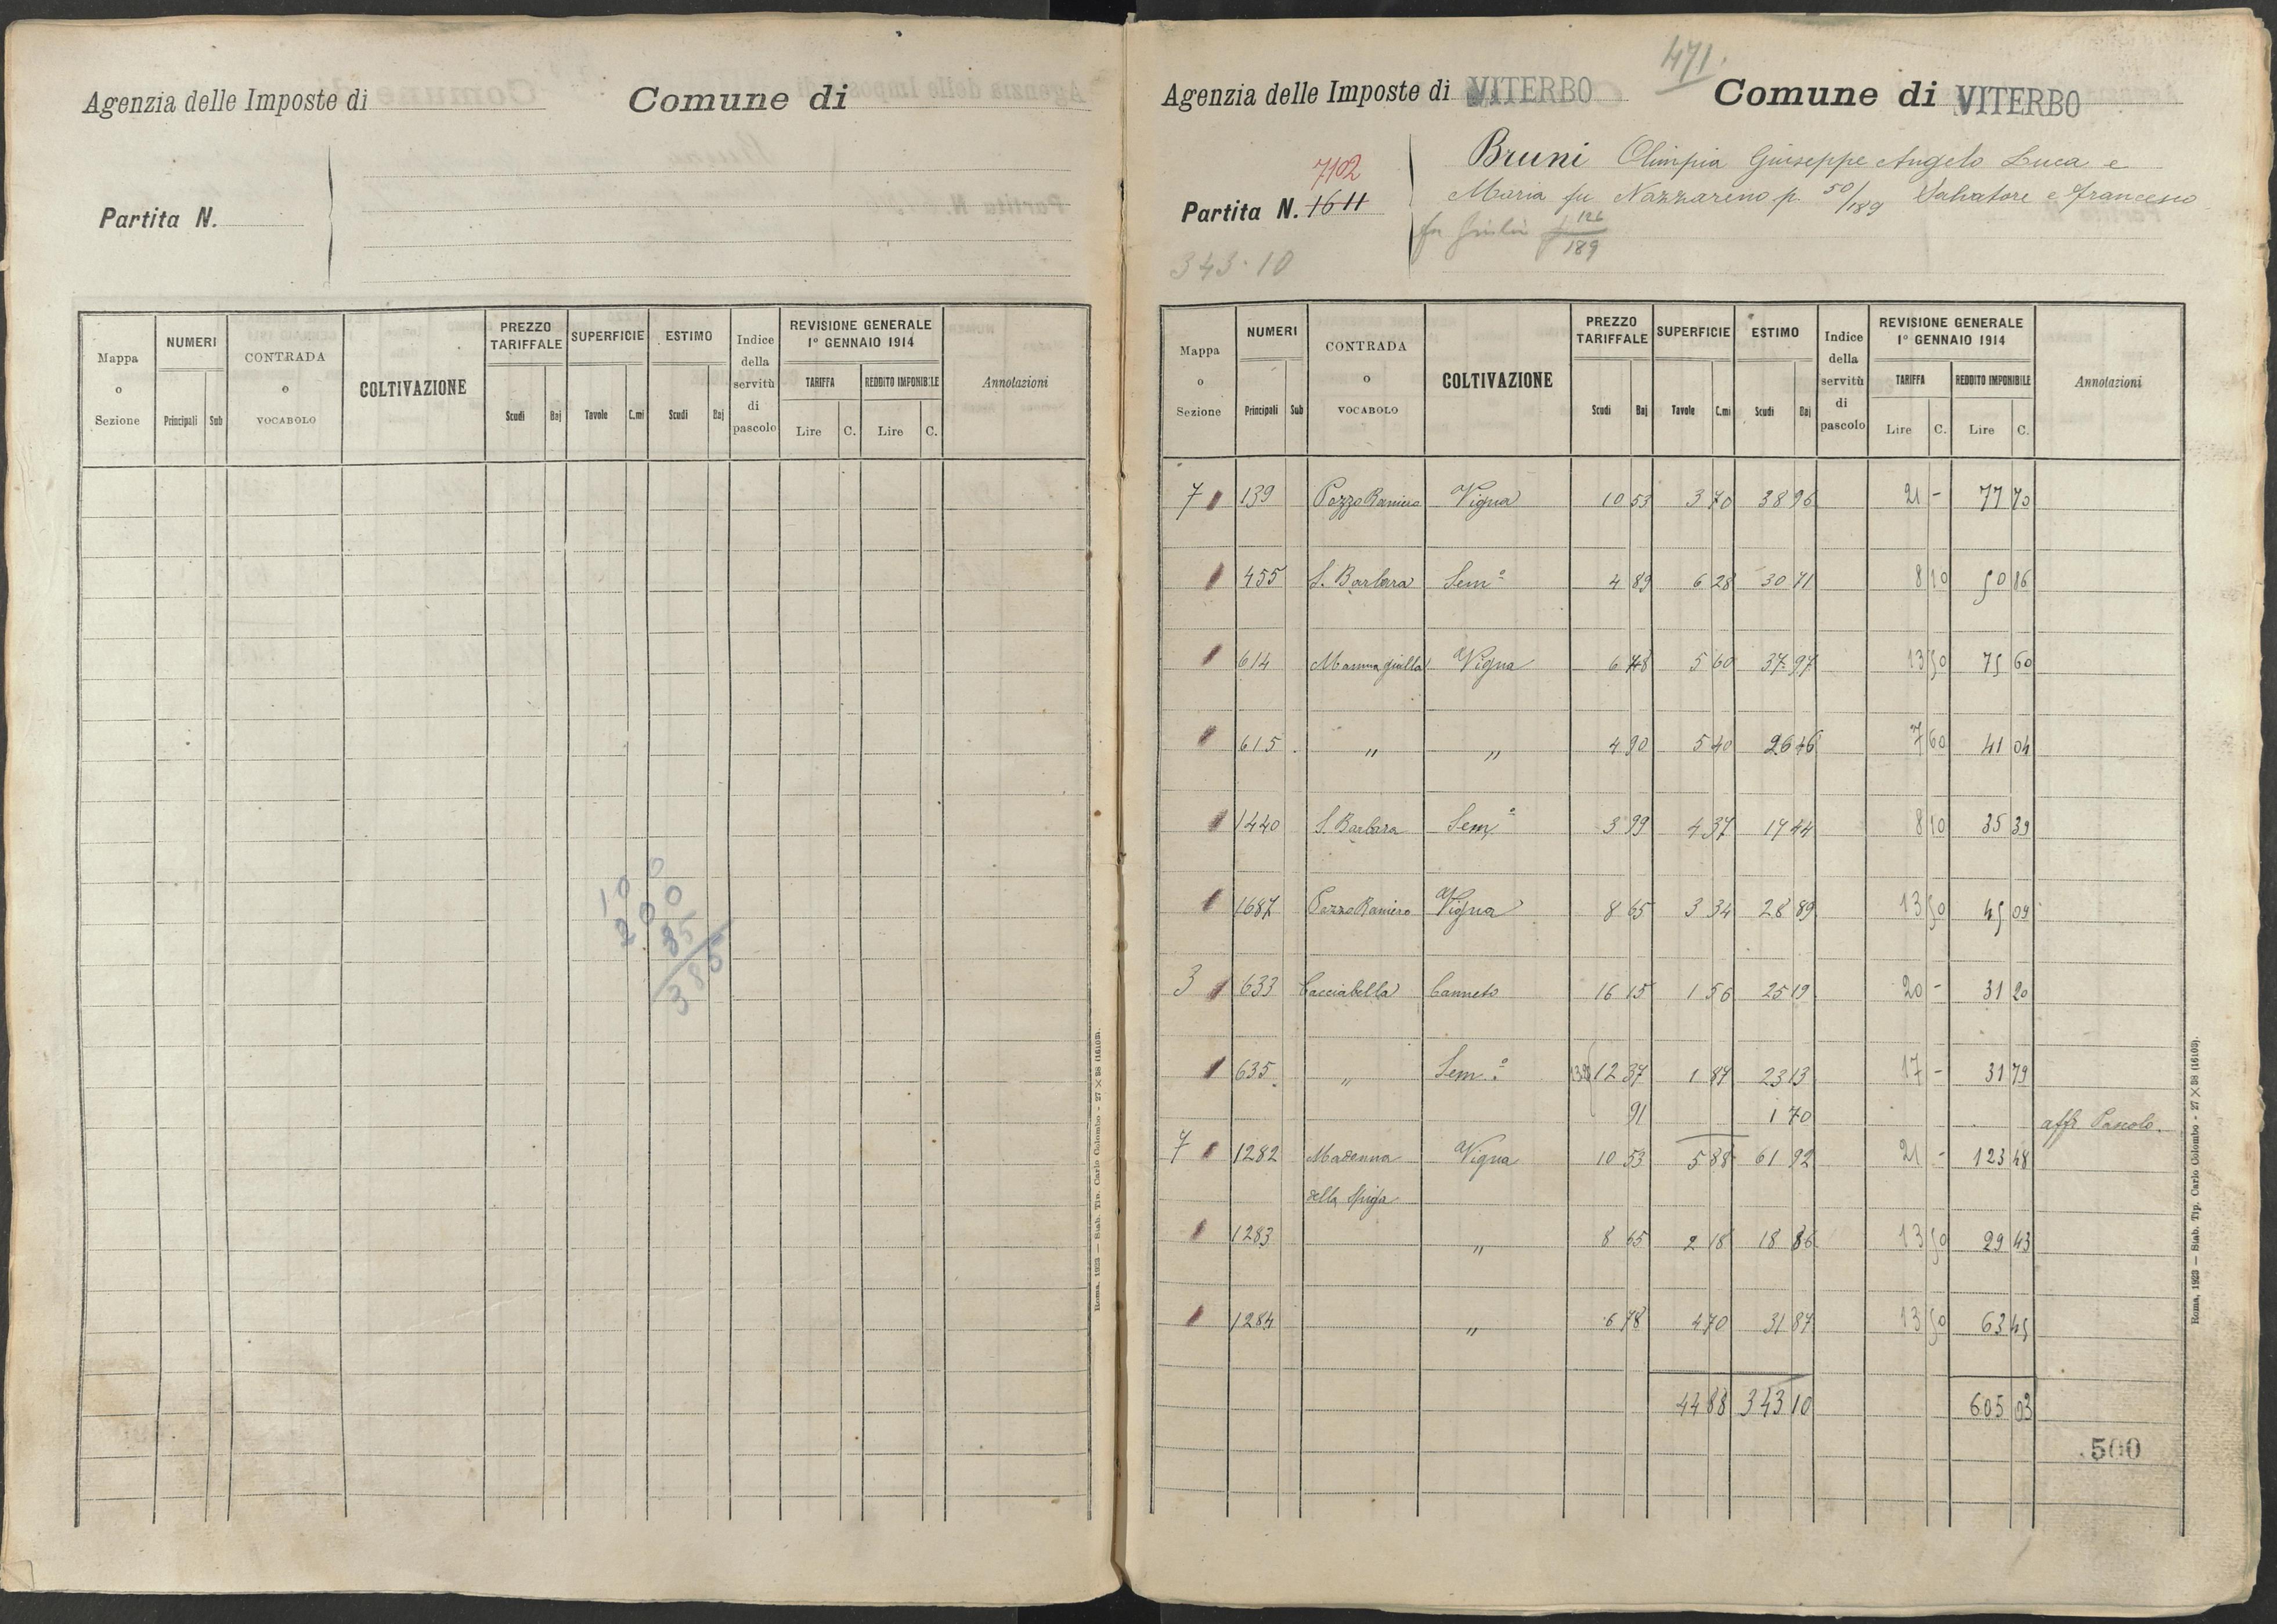 Agenzia delle Imposte di
Comune di
Partita N.
Mappa o Sezione
NUMERI
Principali Sub
CONTRADA o VOCABOLO
COLTIVAZIONE
PREZZO TARIFFALE
Scudi Baj
SUPERFICIE
Tavole C.mi
ESTIMO
Scudi Baj
Indice della servitù di pascolo
REVISIONE GENERALE
1° GENNAIO 1914
TARIFFA
Lire C.
REDDITO IMPONIBILE
Lire C.
Annotazioni
100
200
85
385
Roma, 1923 — Stab. Tip. Carlo Colombo - 27 × 38 (16103).
471.
Agenzia delle Imposte di VITERBO Comune di VITERBO
7102
Partita N. 1611
Bruni Olimpia Giuseppe Angelo Luca e
Maria fu Nazzareno p. 50/189 Salvatore e Francesco
fu Giulio 126/189
343.10
Mappa o Sezione
NUMERI
Principali Sub
CONTRADA o VOCABOLO
COLTIVAZIONE
PREZZO TARIFFALE
Scudi Baj
SUPERFICIE
Tavole C.mi
ESTIMO
Scudi Baj
Indice della servitù di pascolo
REVISIONE GENERALE
1° GENNAIO 1914
TARIFFA
Lire C.
REDDITO IMPONIBILE
Lire C.
Annotazioni
7 139 Pozzo Raniero Vigna 10 53 3 70 38 96 21 - 77 70
455 S. Barbara Sem.º 4 89 6 28 30 71 8 10 50 86
614 Mamma gialla Vigna 6 78 5 60 37 97 13 50 75 60
615 " " 4 90 5 40 26 46 7 60 41 04
1440 S. Barbara Sem.º 3 99 4 37 17 44 8 10 35 39
1687 Pozzo Raniero Vigna 8 65 3 34 28 89 13 50 45 09
3 633 Cacciabella Canneto 16 15 1 56 25 19 20 - 31 20
635 " Sem.º 12 37 1 87 23 13 17 - 31 79
91 1 70 affr. Pascolo.
7 1282 Madonna Vigna 10 53 5 88 61 92 21 - 123 48
della Spiga
1283 " 8 65 2 18 18 86 13 50 29 43
1284 " 6 78 4 70 31 87 13 50 63 45
44 88 343 10 605 03
500
Roma, 1923 — Stab. Tip. Carlo Colombo - 27 × 38 (16103).